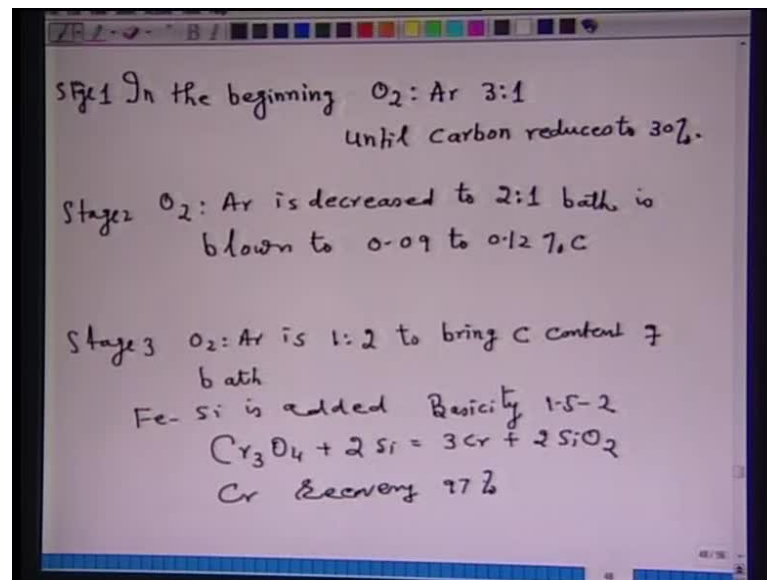 Stage1 In the beginning O2 : Ar 3:1
until Carbon reduces to 30%.
Stage2 O2 : Ar is decreased to 2:1 bath is
blown to 0.09 to 0.12 % C
Stage 3 O2 : Ar is 1:2 to bring C content of
bath
Fe-Si is added Basicity 1.5-2
Cr3O4 + 2 Si = 3 Cr + 2 SiO2
Cr Recovery 97 %